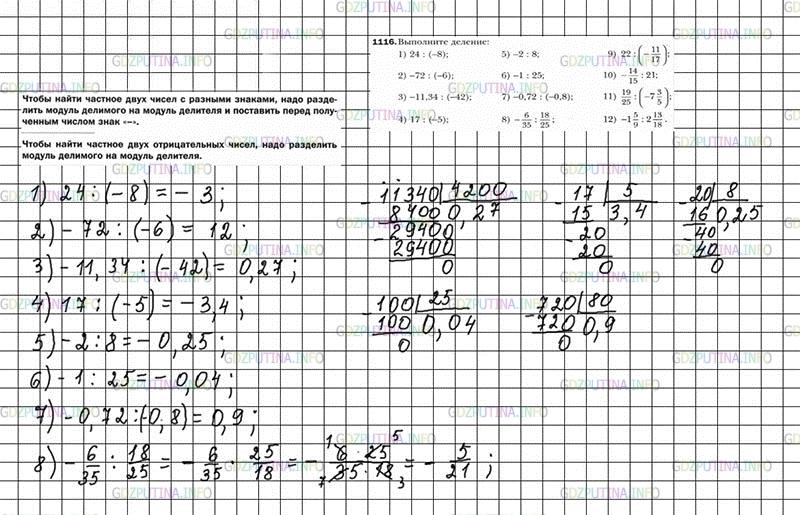 GDZPUTINA.INFO
1116. Выполните деление:
1) 24 : (−8);
2) −72 : (−6);
3) −11,34 : (−42);
4) 17 : (−5);
5) −2 : 8;
6) −1 : 25;
7) −0,72 : (−0,8);
8) −6/35 : 18/25;
9) 22 : (−11/17);
10) −14/15 : 21;
11) 19/25 : (−7 3/5);
12) −1 5/9 : 2 13/18.
Чтобы найти частное двух чисел с разными знаками, надо разде-
лить модуль делимого на модуль делителя и поставить перед полу-
ченным числом знак «−».
Чтобы найти частное двух отрицательных чисел, надо разделить
модуль делимого на модуль делителя.
1) 24 : (−8) = −3;
2) −72 : (−6) = 12;
3) −11,34 : (−42) = 0,27;
4) 17 : (−5) = −3,4;
5) −2 : 8 = −0,25;
6) −1 : 25 = −0,04;
7) −0,72 : (−0,8) = 0,9;
8) −6/35 : 18/25 = −6/35 · 25/18 = − 1 6 · 25 5 / 7 35 · 18 3 = −5/21;
−11340 | 4200
8400 0,27
−29400
29400
0
−17 | 5
15 3,4
−20
20
0
−20 | 8
16 0,25
−40
40
0
−100 | 25
100 0,04
0
−720 | 80
720 0,9
0